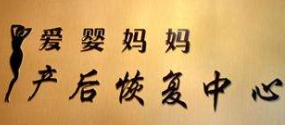 爱婴妈妈
产后恢复中心